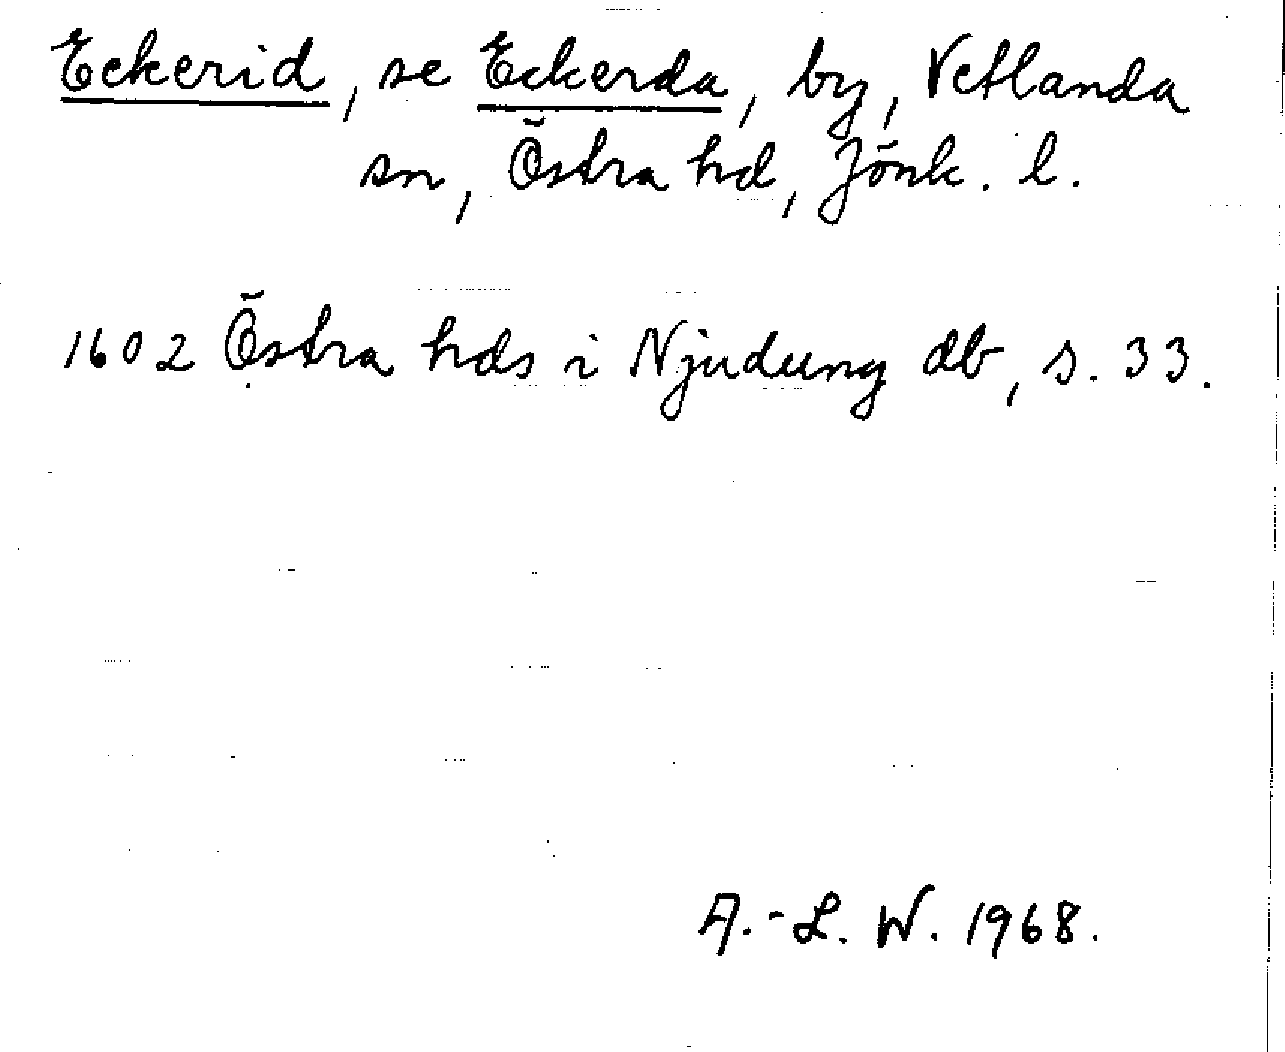 Eckerid, se Eckerda, by, Vetlanda
sn, Östra hd, Jönk. l.
1602 Östra hds i Njudung db, s. 33.
A.-L. W. 1968.